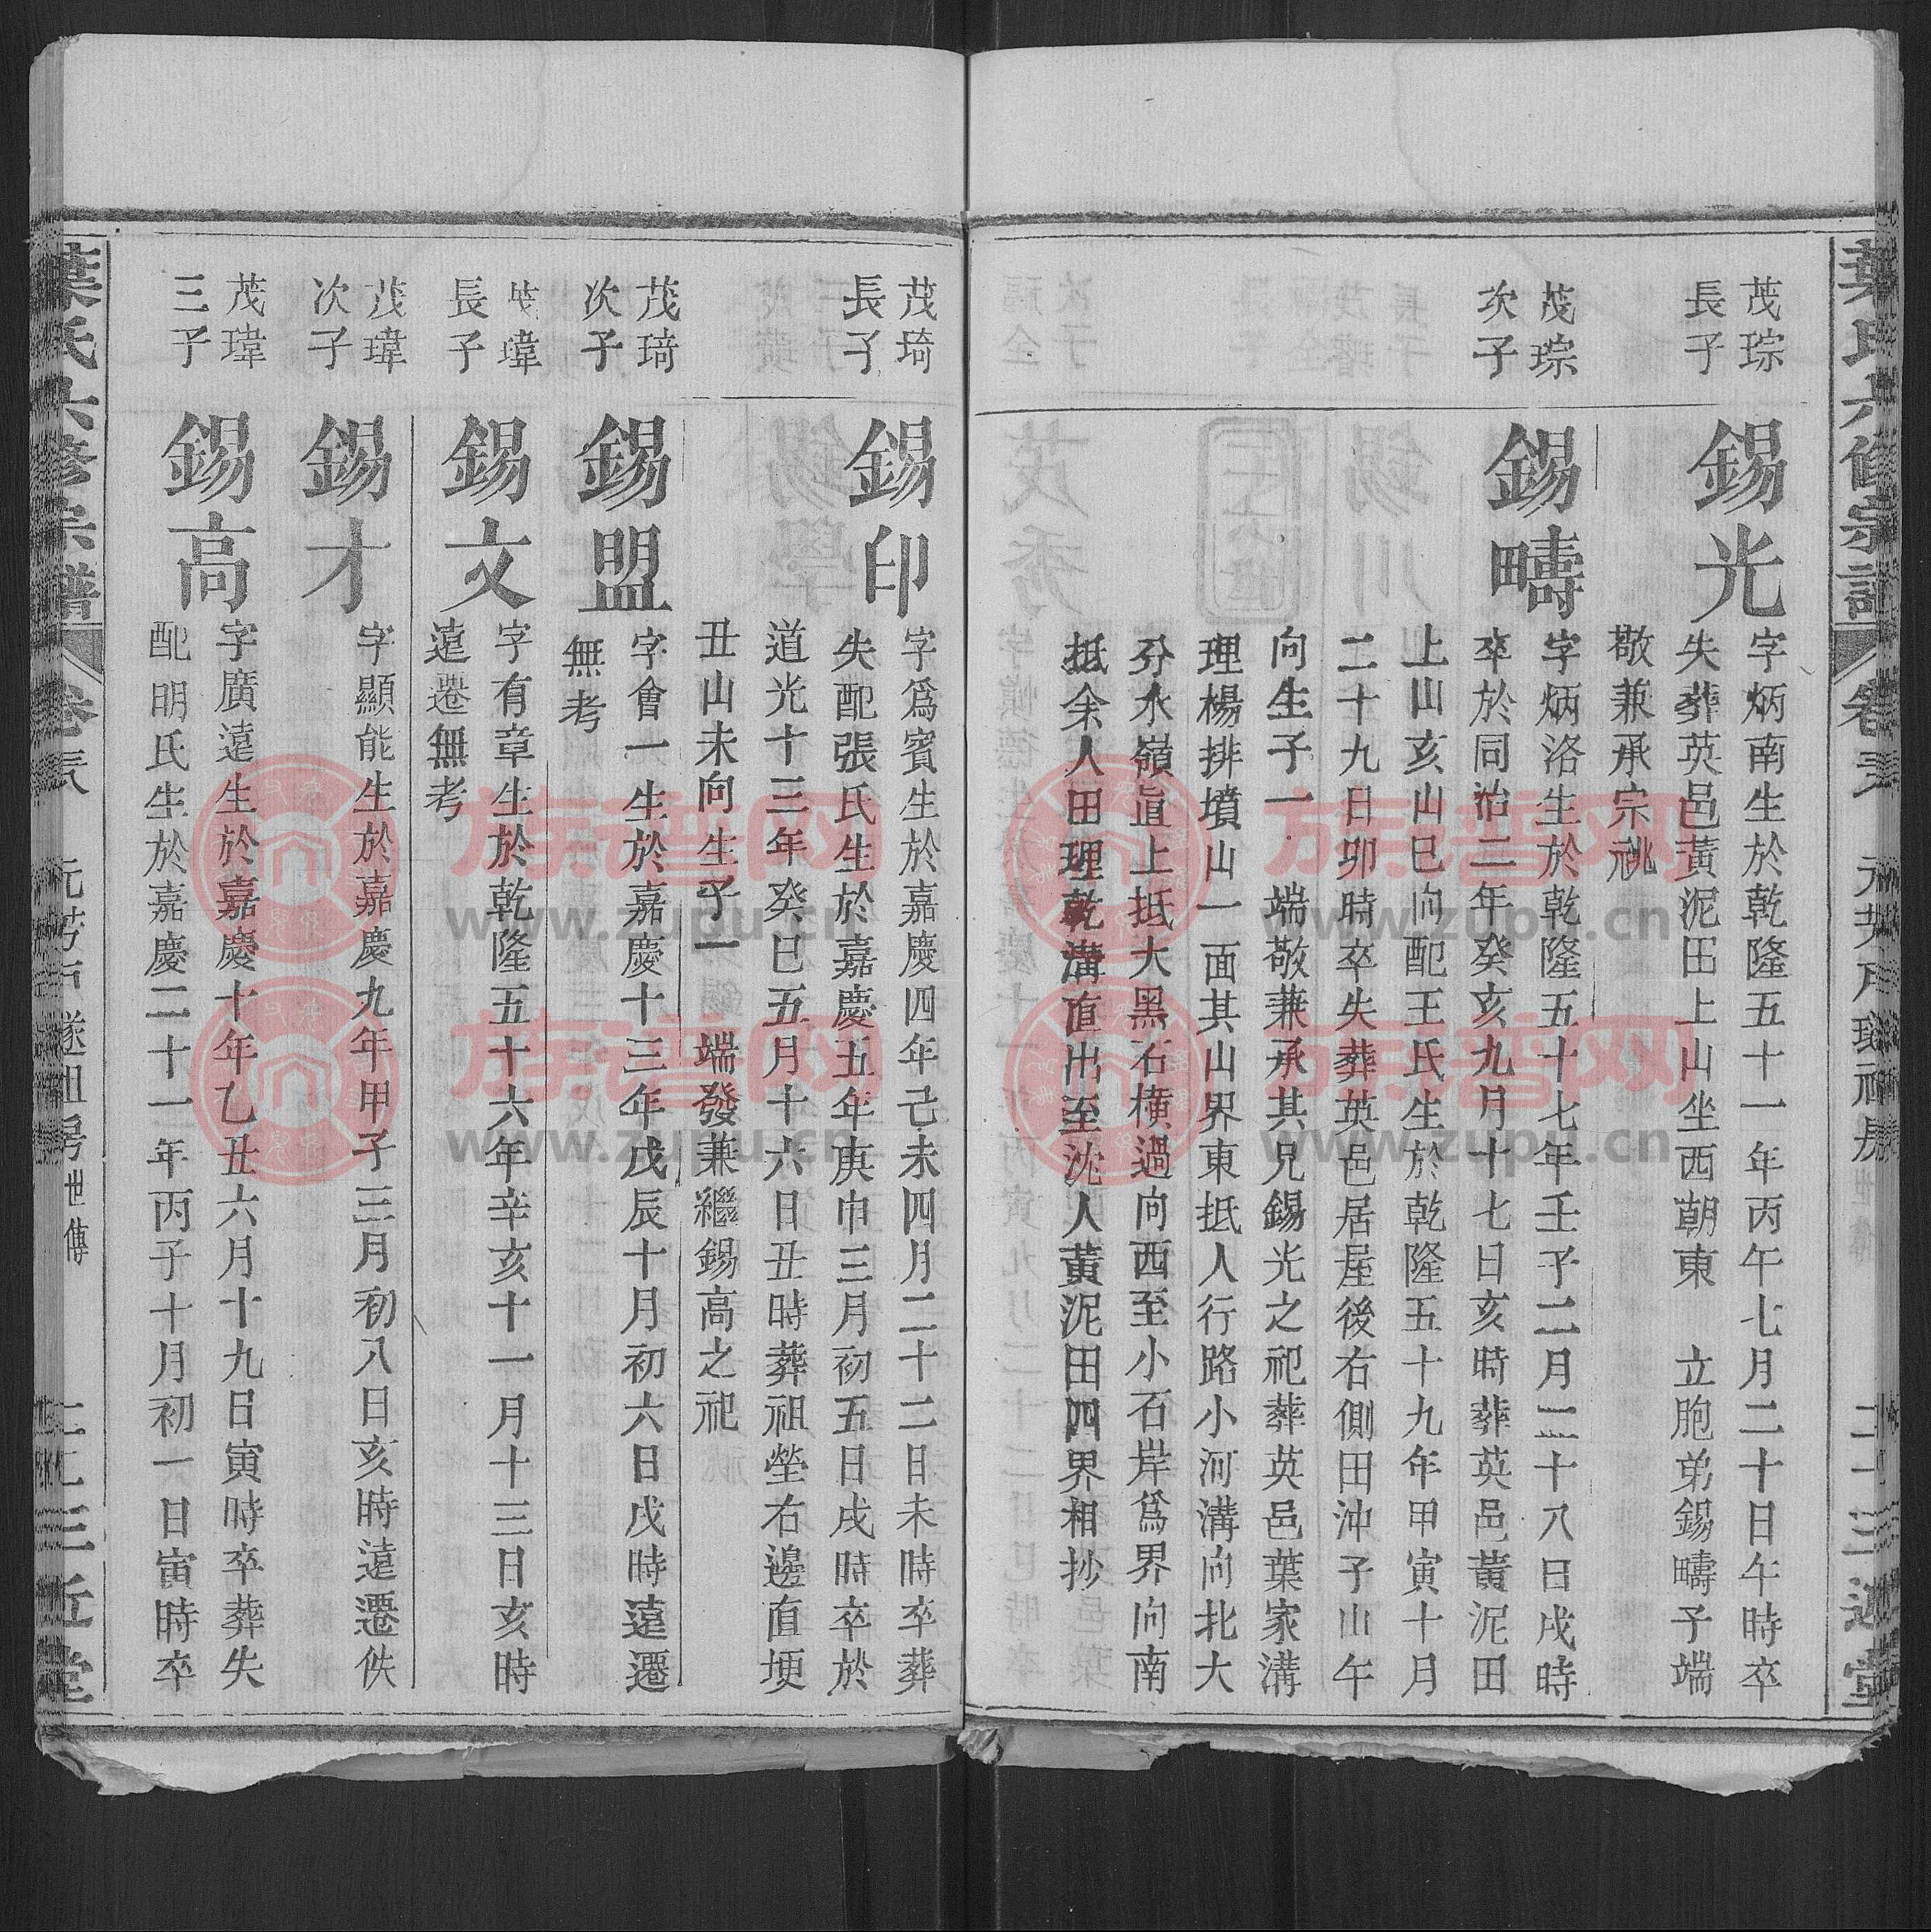 茂琮
長子
錫光
字炳南生於乾隆五十一年丙午七月二十日午時卒
失葬英邑黃泥田上山坐西朝東 立胞弟錫疇子端
敬兼承宗祧
茂琮
次子
錫疇
字炳洛生於乾隆五十七年壬子二月二十八日戌時
卒於同治二年癸亥九月十七日亥時葬英邑黃泥田
上山亥山巳向配王氏生於乾隆五十九年甲寅十月
二十九日卯時卒失葬英邑居屋後右側田沖子山午
向生子一 端敬兼承其兄錫光之祀葬英邑葉家溝
理楊排墳山一面其山界東抵人行路小河溝向北大
分水嶺直上抵大黑石橫過向西至小石岸爲界向南
抵余人田理乾溝直出至沈人黃泥田四界相抄
茂琦
長子
錫印
字爲賓生於嘉慶四年己未四月二十二日未時卒葬
失配張氏生於嘉慶五年庚申三月初五日戌時卒於
道光十三年癸巳五月十六日丑時葬祖塋右邊直埂
丑山未向生子一 端發兼繼錫高之祀
茂琦
次子
錫盟
字會一生於嘉慶十三年戊辰十月初六日戌時遠遷
無考
茂瑋
長子
錫文
字有章生於乾隆五十六年辛亥十一月十三日亥時
遠遷無考
茂瑋
次子
錫才
字顯能生於嘉慶九年甲子三月初八日亥時遠遷佚
茂瑋
三子
錫高
字廣遠生於嘉慶十年乙丑六月十九日寅時卒葬失
配明氏生於嘉慶二十一年丙子十月初一日寅時卒
葉氏共修宗譜
世傳
族譜网
www.zupu.cn
族譜网
www.zupu.cn
族譜网
www.zupu.cn
族譜网
www.zupu.cn